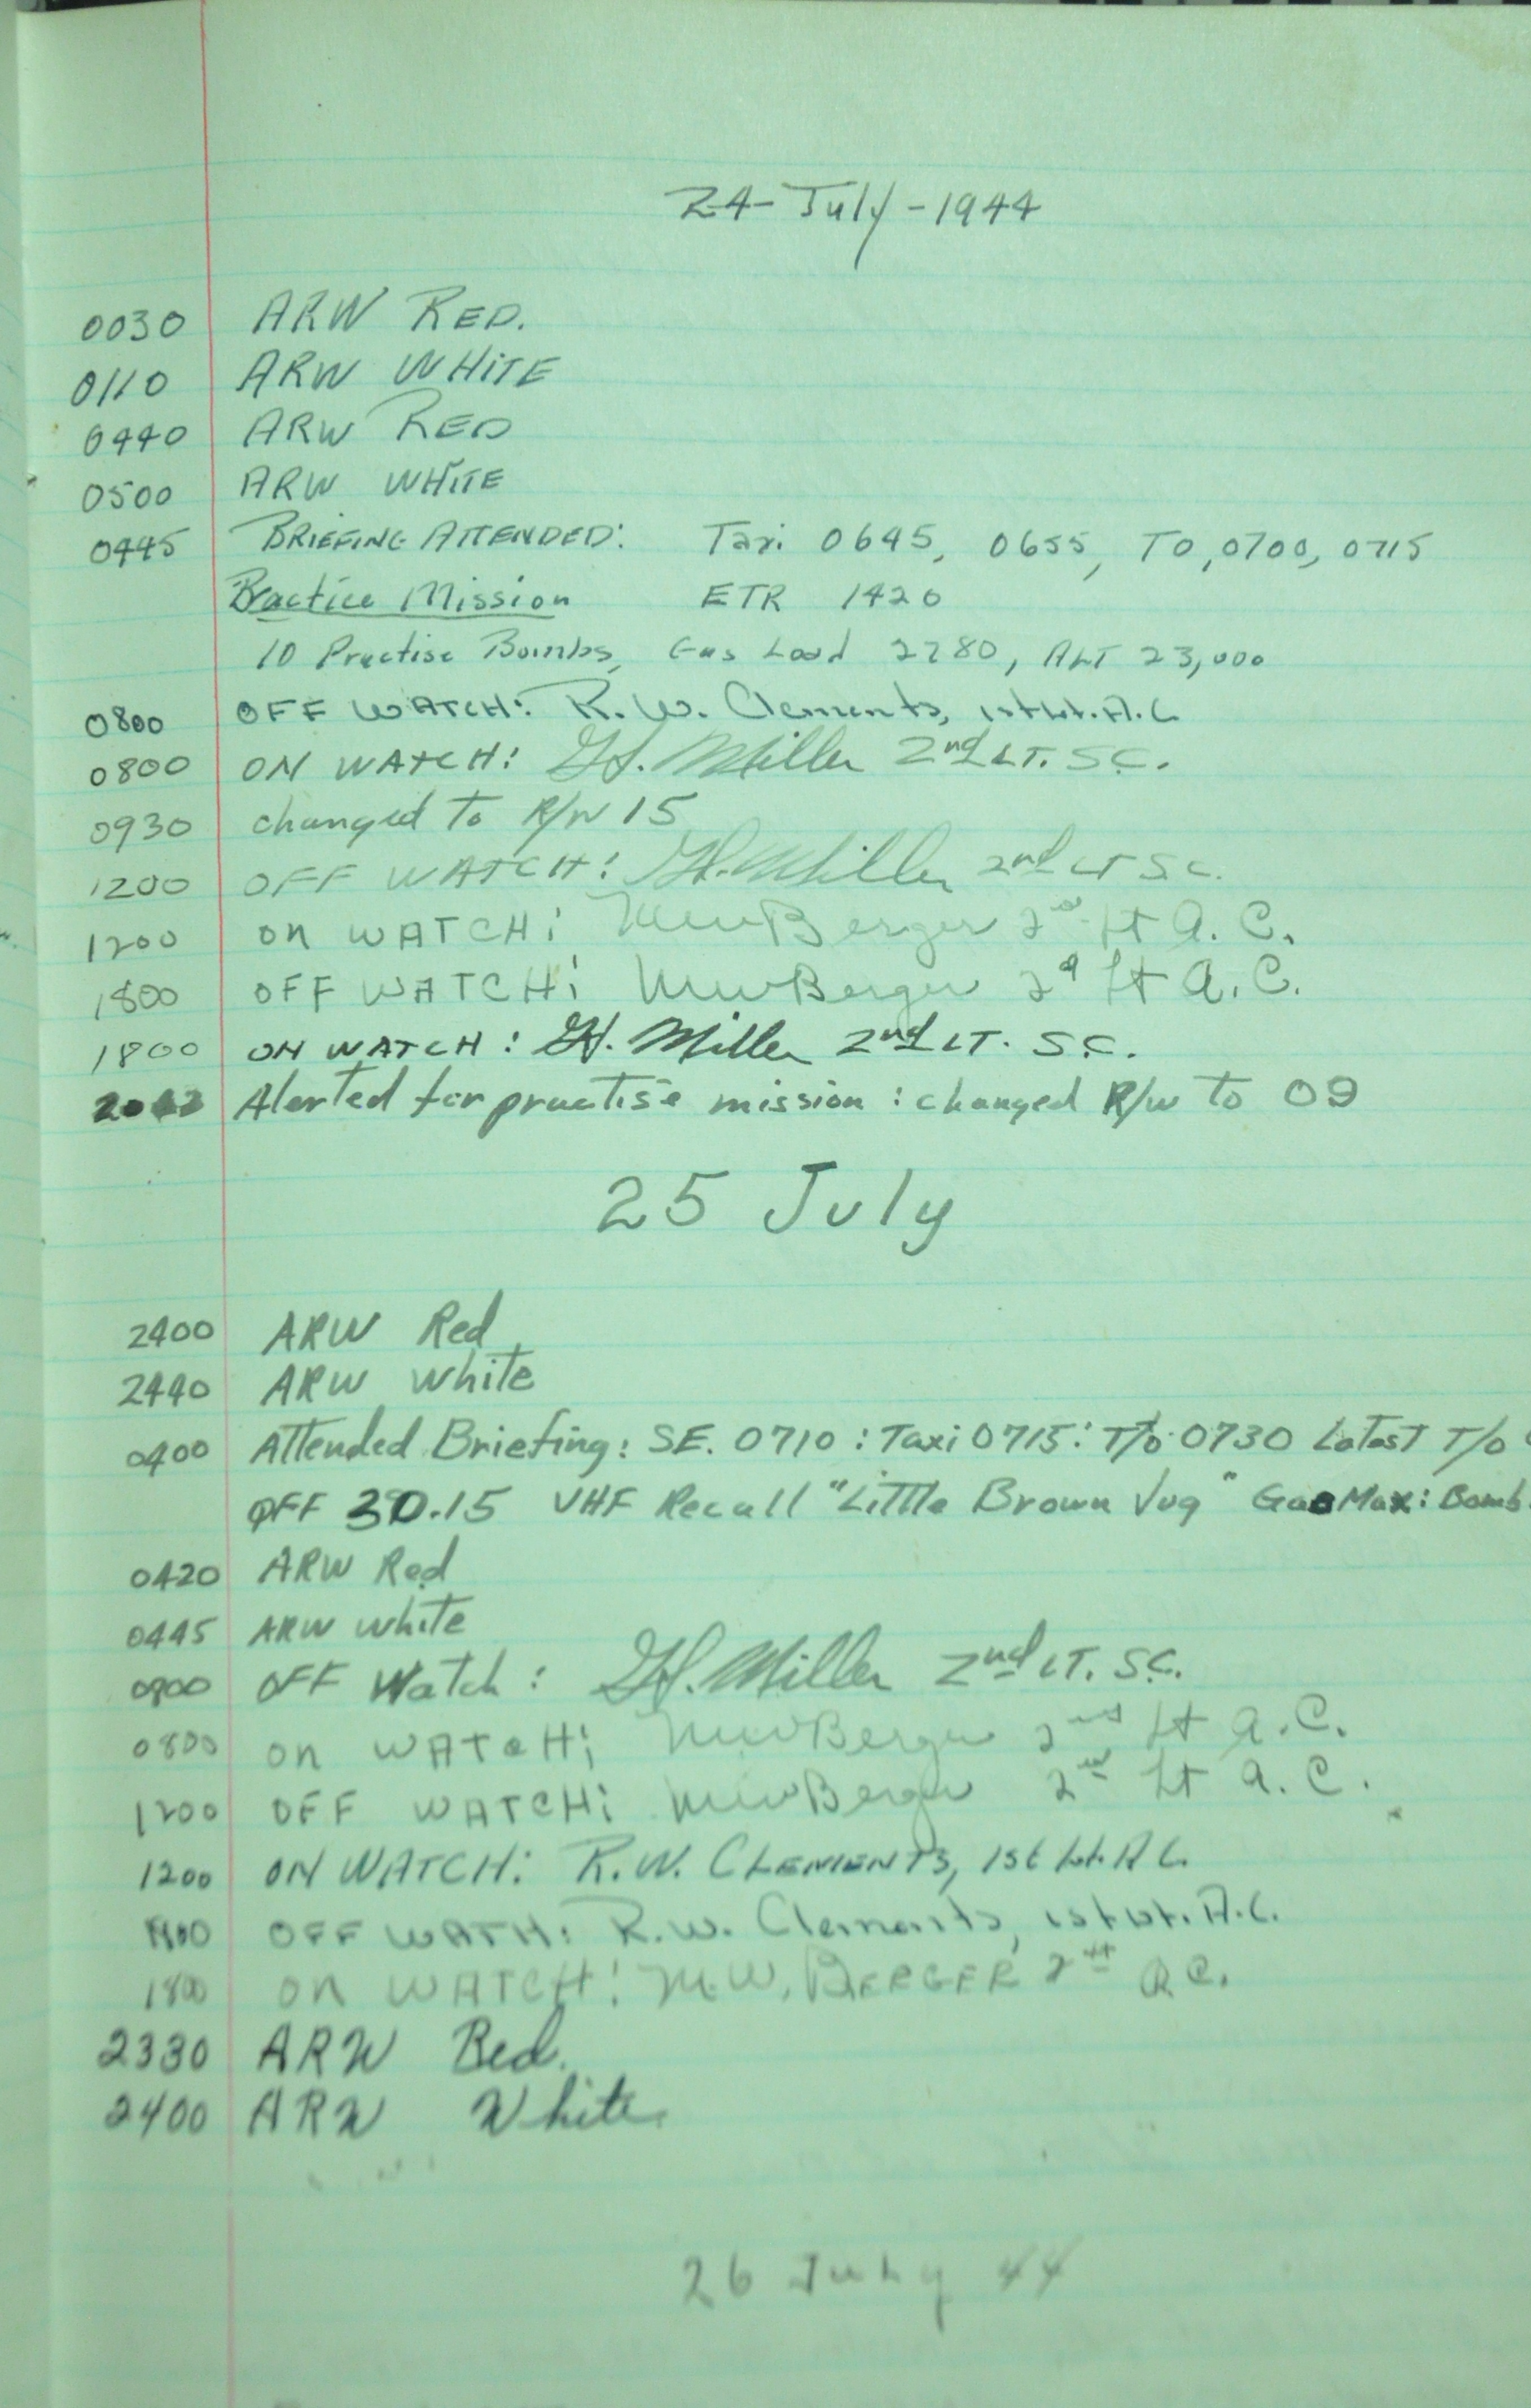 24-July-1944
0030 ARW RED.
0110 ARW WHITE
0440 ARW RED
0500 ARW WHITE
0445 BRIEFING ATTENDED: Taxi 0645, 0655, TO, 0700, 0715
Practice Mission ETR 1420
10 Practise Bombs, Gas Load 2280, ALT 23,000
0800 OFF WATCH: R.W. Clements, 1st Lt. A.C.
0800 ON WATCH: Miller 2nd LT. S.C.
0930 changed to R/W 15
1200 OFF WATCH: Miller 2nd LT S.C.
1200 ON WATCH: MWBerger 2nd Lt A.C.
1800 OFF WATCH: MWBerger 2d Lt A.C.
1800 ON WATCH: Miller 2nd LT. S.C.
Alerted for practise mission: changed R/W to 09
25 July
2400 ARW Red
2440 ARW White
0400 Attended Briefing: SE. 0710: Taxi 0715: T/O 0730 Latest T/O
OFF 30.15 VHF Recall "Little Brown Jug" Gas Max: Bomb
0420 ARW Red
0445 ARW White
0800 OFF Watch: Miller 2nd LT. S.C.
0800 ON WATCH: MWBerger 2nd Lt A.C.
1200 OFF WATCH: MWBerger 2nd Lt A.C.
1200 ON WATCH: R.W. CLEMENTS, 1st Lt. A C.
OFF WATH: R.W. Clements, 1st Lt. A.C.
1800 ON WATCH: M.W. BERGER 2nd A.C.
2330 ARW Red.
2400 ARW White
26 July 44